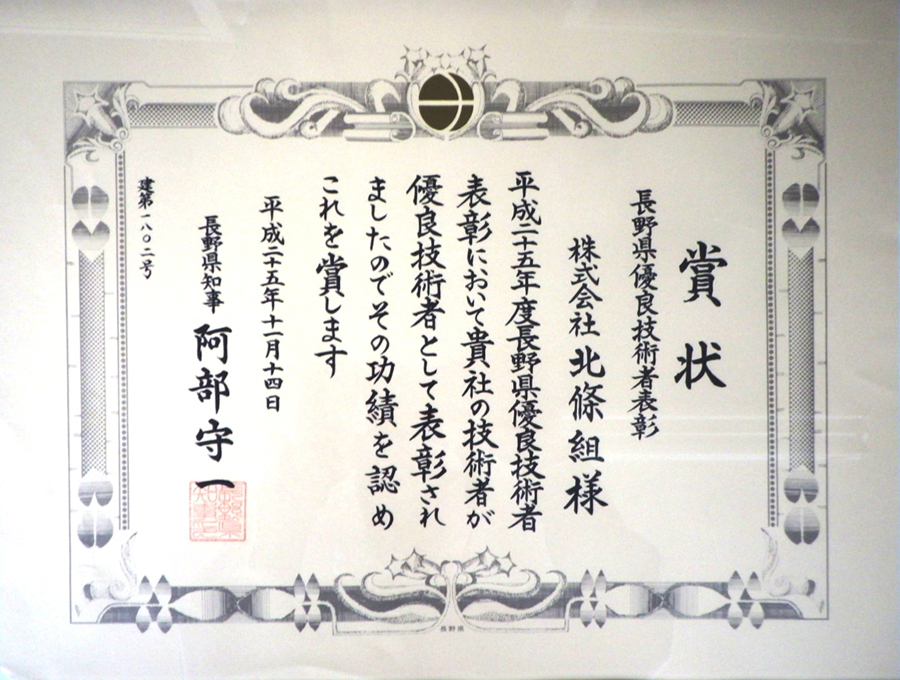 賞状
長野県優良技術者表彰
株式会社北條組様
平成二十五年度長野県優良技術者
表彰において貴社の技術者が
優良技術者として表彰され
ましたのでその功績を認め
これを賞します
平成二十五年十一月十四日
長野県知事 阿部守一
建第一八〇二号
長野県